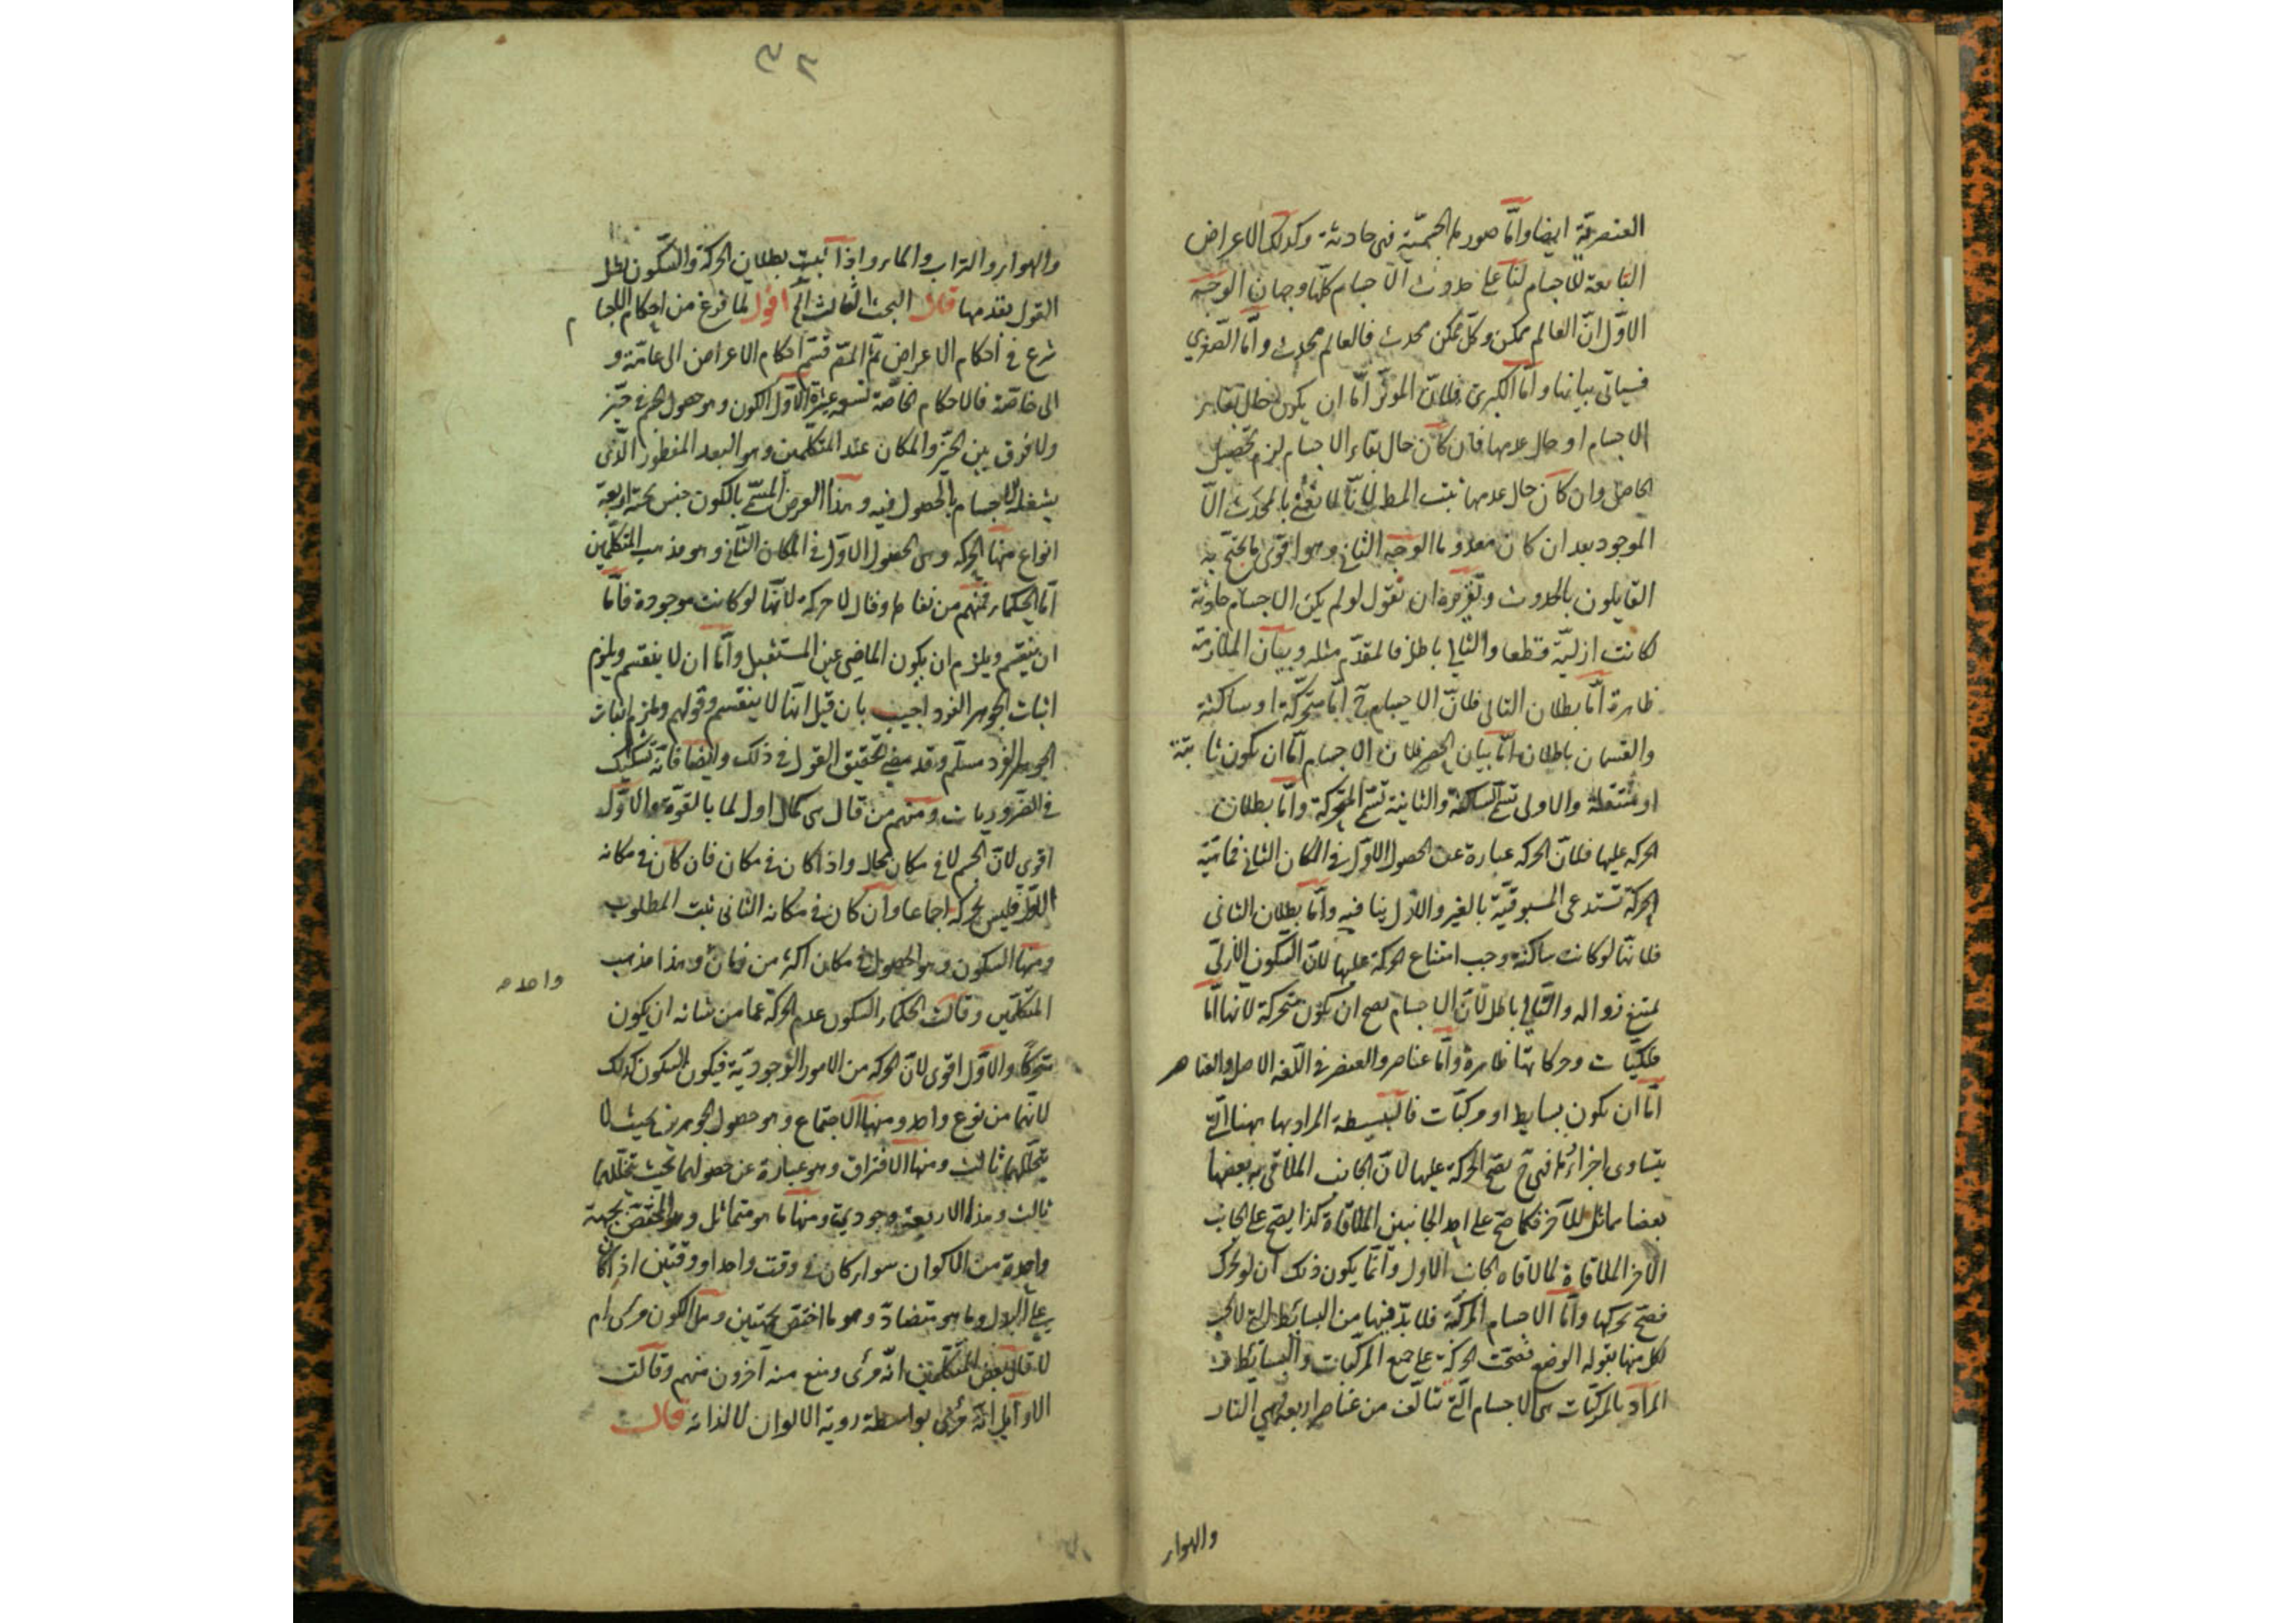 العنصرية ايضا وامّا صورها الجسميّة فهى حادثة وكذلك الاعراض
التابعة للاجسام لنا على حدوث الاجسام كلّها وجهان الوجه
الاوّل انّ العالم ممكن وكلّ ممكن محدث فالعالم محدث وامّا الصّغرى
فسياتى بيانها وامّا الكبرى فلانّ الموثّر امّا ان يكون حال بقاء
الاجسام او حال عدمها فان كان حال بقاء الاجسام لزم تحصيل
الحاصل وان كان حال عدمها ثبت المط لانّا لا نعنى بالمحدث الّا
الموجود بعد ان كان معدوما الوجه الثانى وهو اقوى ما يحتج به
القايلون بالحدوث وتقريره ان نقول لو لم يكن الاجسام حادثة
لكانت ازليّة قطعا والتالى باطل فالمقدّم مثله وبيان الملازمة
ظاهرة امّا بطلان التالى فلانّ الاجسام ح امّا متحرّكة او ساكنة
والقسمان باطلان امّا بيان الحصر فلان الاجسام امّا ان يكون ثابتة
او منتقلة والاولى تسمّى السّاكنة والثانية تسمّى المتحرّكة وامّا بطلان
الحركه عليها فلانّ الحركه عبارة عن الحصول الاوّل فى المكان الثانى فماهيّة
الحركة تستدعى المسبوقيّة بالغير والازل ينافيه وامّا بطلان الثانى
فلانّها لو كانت ساكنة وجب امتناع الحركة عليها لانّ السّكون الازلىّ
يمتنع زواله والتّالى باطل لانّ الاجسام يصح ان يكون متحركة لانّها امّا
فلكيّات وحركاتها ظاهرة وامّا عناصر والعنصر فى اللّغة الاصل والعناصر
امّا ان يكون بسايط او مركبّات فالبسيطة المراد بها ههنا الّتى
يتساوى اجزاؤها فهى ح يصحّ الحركة عليها لانّ الجانب الملاقى به بعضها
بعضا مماثل للآخر فكما صحّ على احد الجانبين الملاقاة كذا يصحّ على الجانب
الآخر الملاقاة لما لاقاه الجانب الاول وانّما يكون ذلك ان لو تحرّك
فصحّ تحركها وامّا الاجسام المركّبة فلا بدّ فيها من البسائط
لكلّ منها بقوله الوضع فصحّت الحركة على جميع المركّبات والبسائط
المراد بالمركّبات هى الاجسام الّتى تتالّف من عناصر اربعة وهى النار
والهواء
٣٢
والهواء والتراب والماء واذا ثبت بطلان الحركة والسّكون بطل
القول بقدمها قال البحث الثالث الخ اقول لما فرغ من احكام الاجسام
شرع فى احكام الاعراض ثمّ المصّ قسّم احكام الاعراض الى عامّة و
الى خاصّة فالاحكام الخاصّة تسعة عشرة الاوّل الكون وهو حصول الجسم فى حيّز
ولا فرق بين الحيّز والمكان عند المتكلّمين وهو البعد المفطور الّذى
يشغله الاجسام بالحصول فيه وهذا العرض المسمّى بالكون جنس تحته اربعة
انواع منها الحركه وهى الحصول الاوّل فى المكان الثانى وهو مذهب المتكلّمين
امّا الحكماء فمنهم من نفاها وقال لا حركة لانّها لو كانت موجودة فامّا
ان ينقسم ويلزم ان يكون الماضى عين المستقبل وامّا ان لا ينقسم ويلزم
اثبات الجوهر الفرد اجيب بان قيل انّها لا ينقسم وقولهم يلزم اثبات
الجوهر الفرد مسلّم وقد مضى تحقيق القول فى ذلك وايضا فانّه تشكيك
فى الضّروريات ومنهم من قال هى كمال اول لما بالقوّة والاوّل
اقوى لانّ الجسم لا فى مكان محال واذا كان فى مكان فان كان فى مكانه
الاوّل فليس بحركه اجماعا وان كان فى مكانه الثانى ثبت المطلوب
ومنها السكون وهو الحصول فى مكان اكثر من زمان وهذا مذهب
واحد
المتكلّمين وقالت الحكماء السكون عدم الحركة عما من شانه ان يكون
متحركا والاوّل اقوى لانّ الحركه من الامور الوجوديّة فيكون السكون كذلك
لانّهما من نوع واحد ومنها الاجتماع وهو حصول الجوهرين بحيث لا
يتخلّلهما ثالث ومنها الافتراق وهو عبارة عن حصولهما بحيث يتخلّلهما
ثالث وهذا الاربعة وجودية ومنها ما هو متماثل وهو المختصّ بجهة
واحدة من الاكوان سواء كان فى وقت واحد او وقتين اذ كان
على البدل وما هو متضادّ وهو ما اختصّ بجهتين وهل الكون مرئى ام
لا قال بعض المتكلّمين انّه مرئى ومنع منه آخرون منهم وقالت
الاوآيل انّه مرئى بواسطة روية الالوان لا لذاته قال